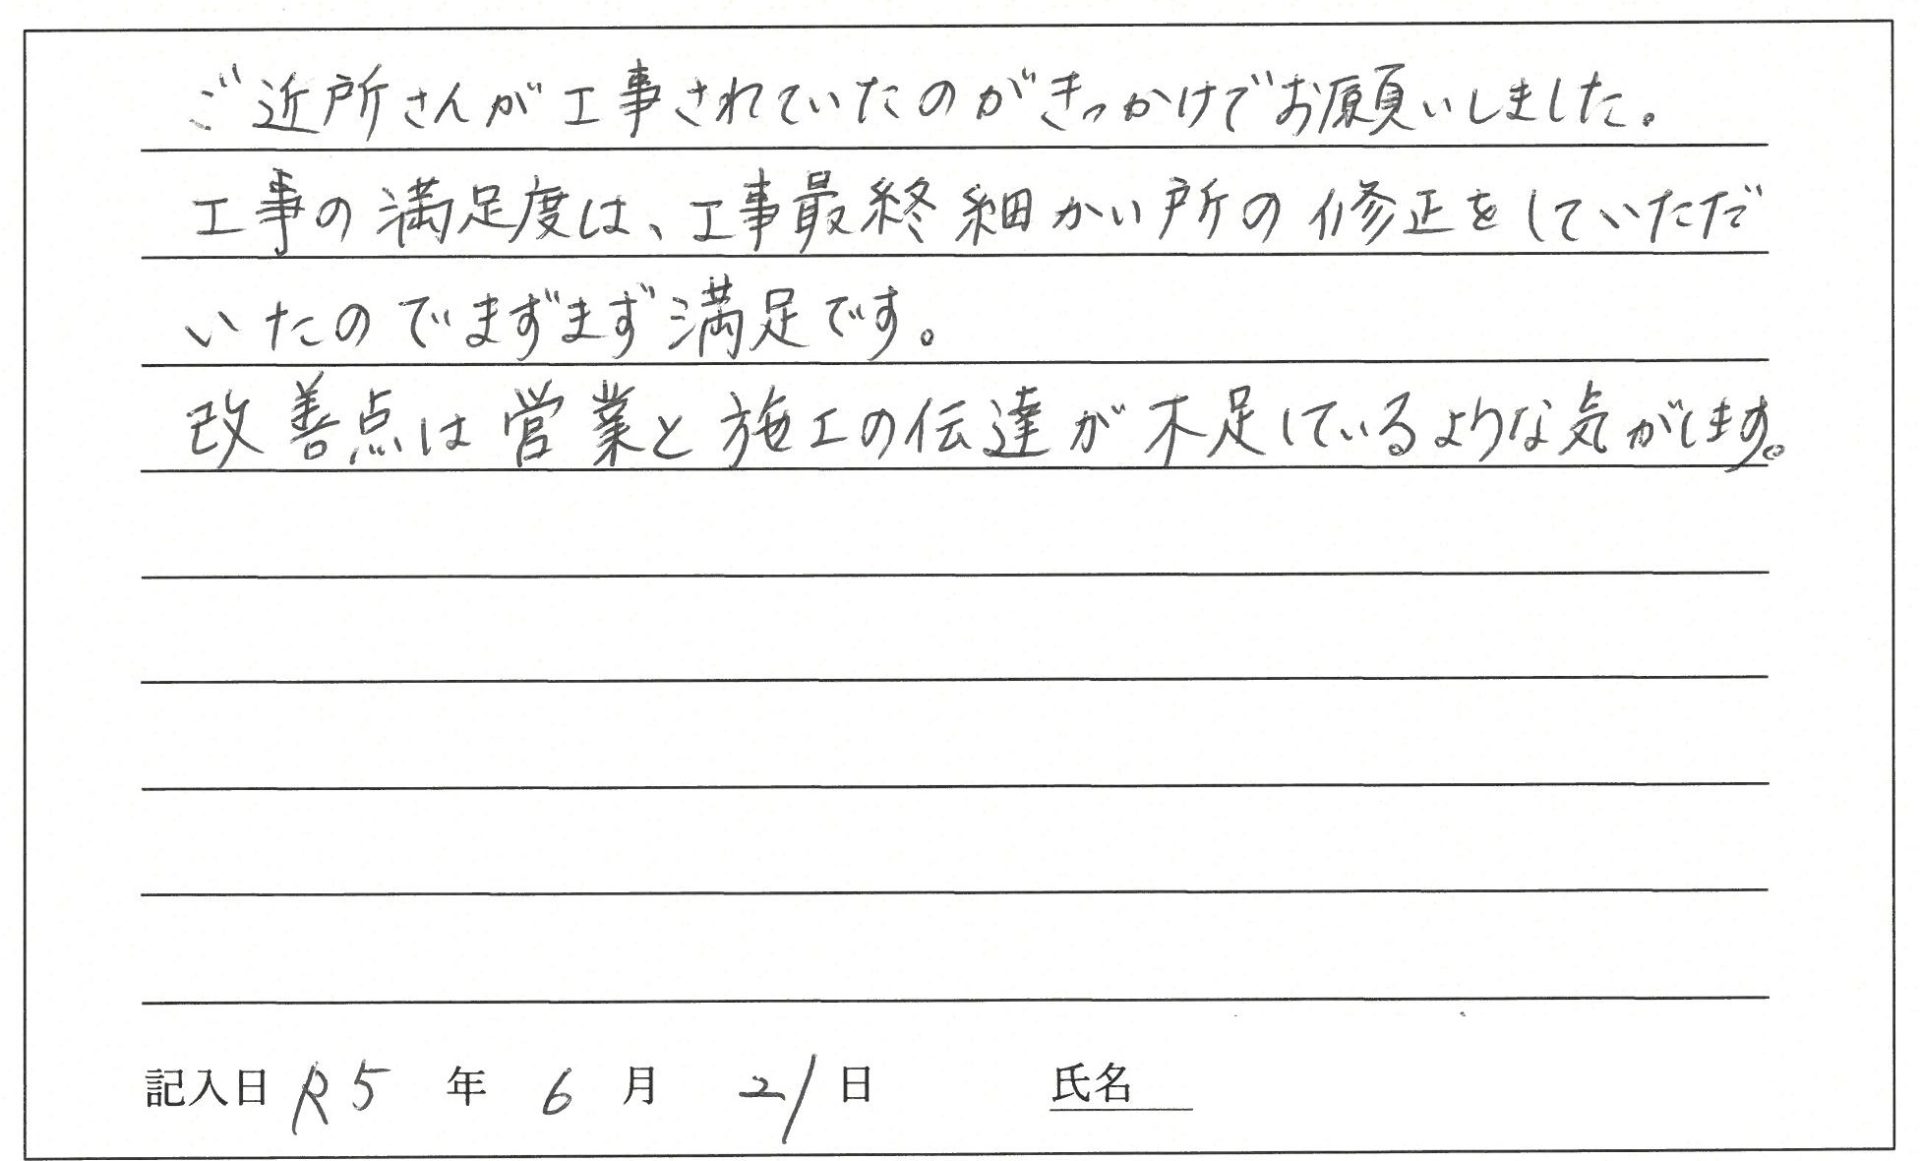 ご近所さんが工事されていたのがきっかけでお願いしました。
工事の満足度は、工事最終細かい所の修正をしていただ
いたのでまずまず満足です。
改善点は営業と施工の伝達が不足しているような気がします。
記入日 R5 年 6 月 21 日 氏名